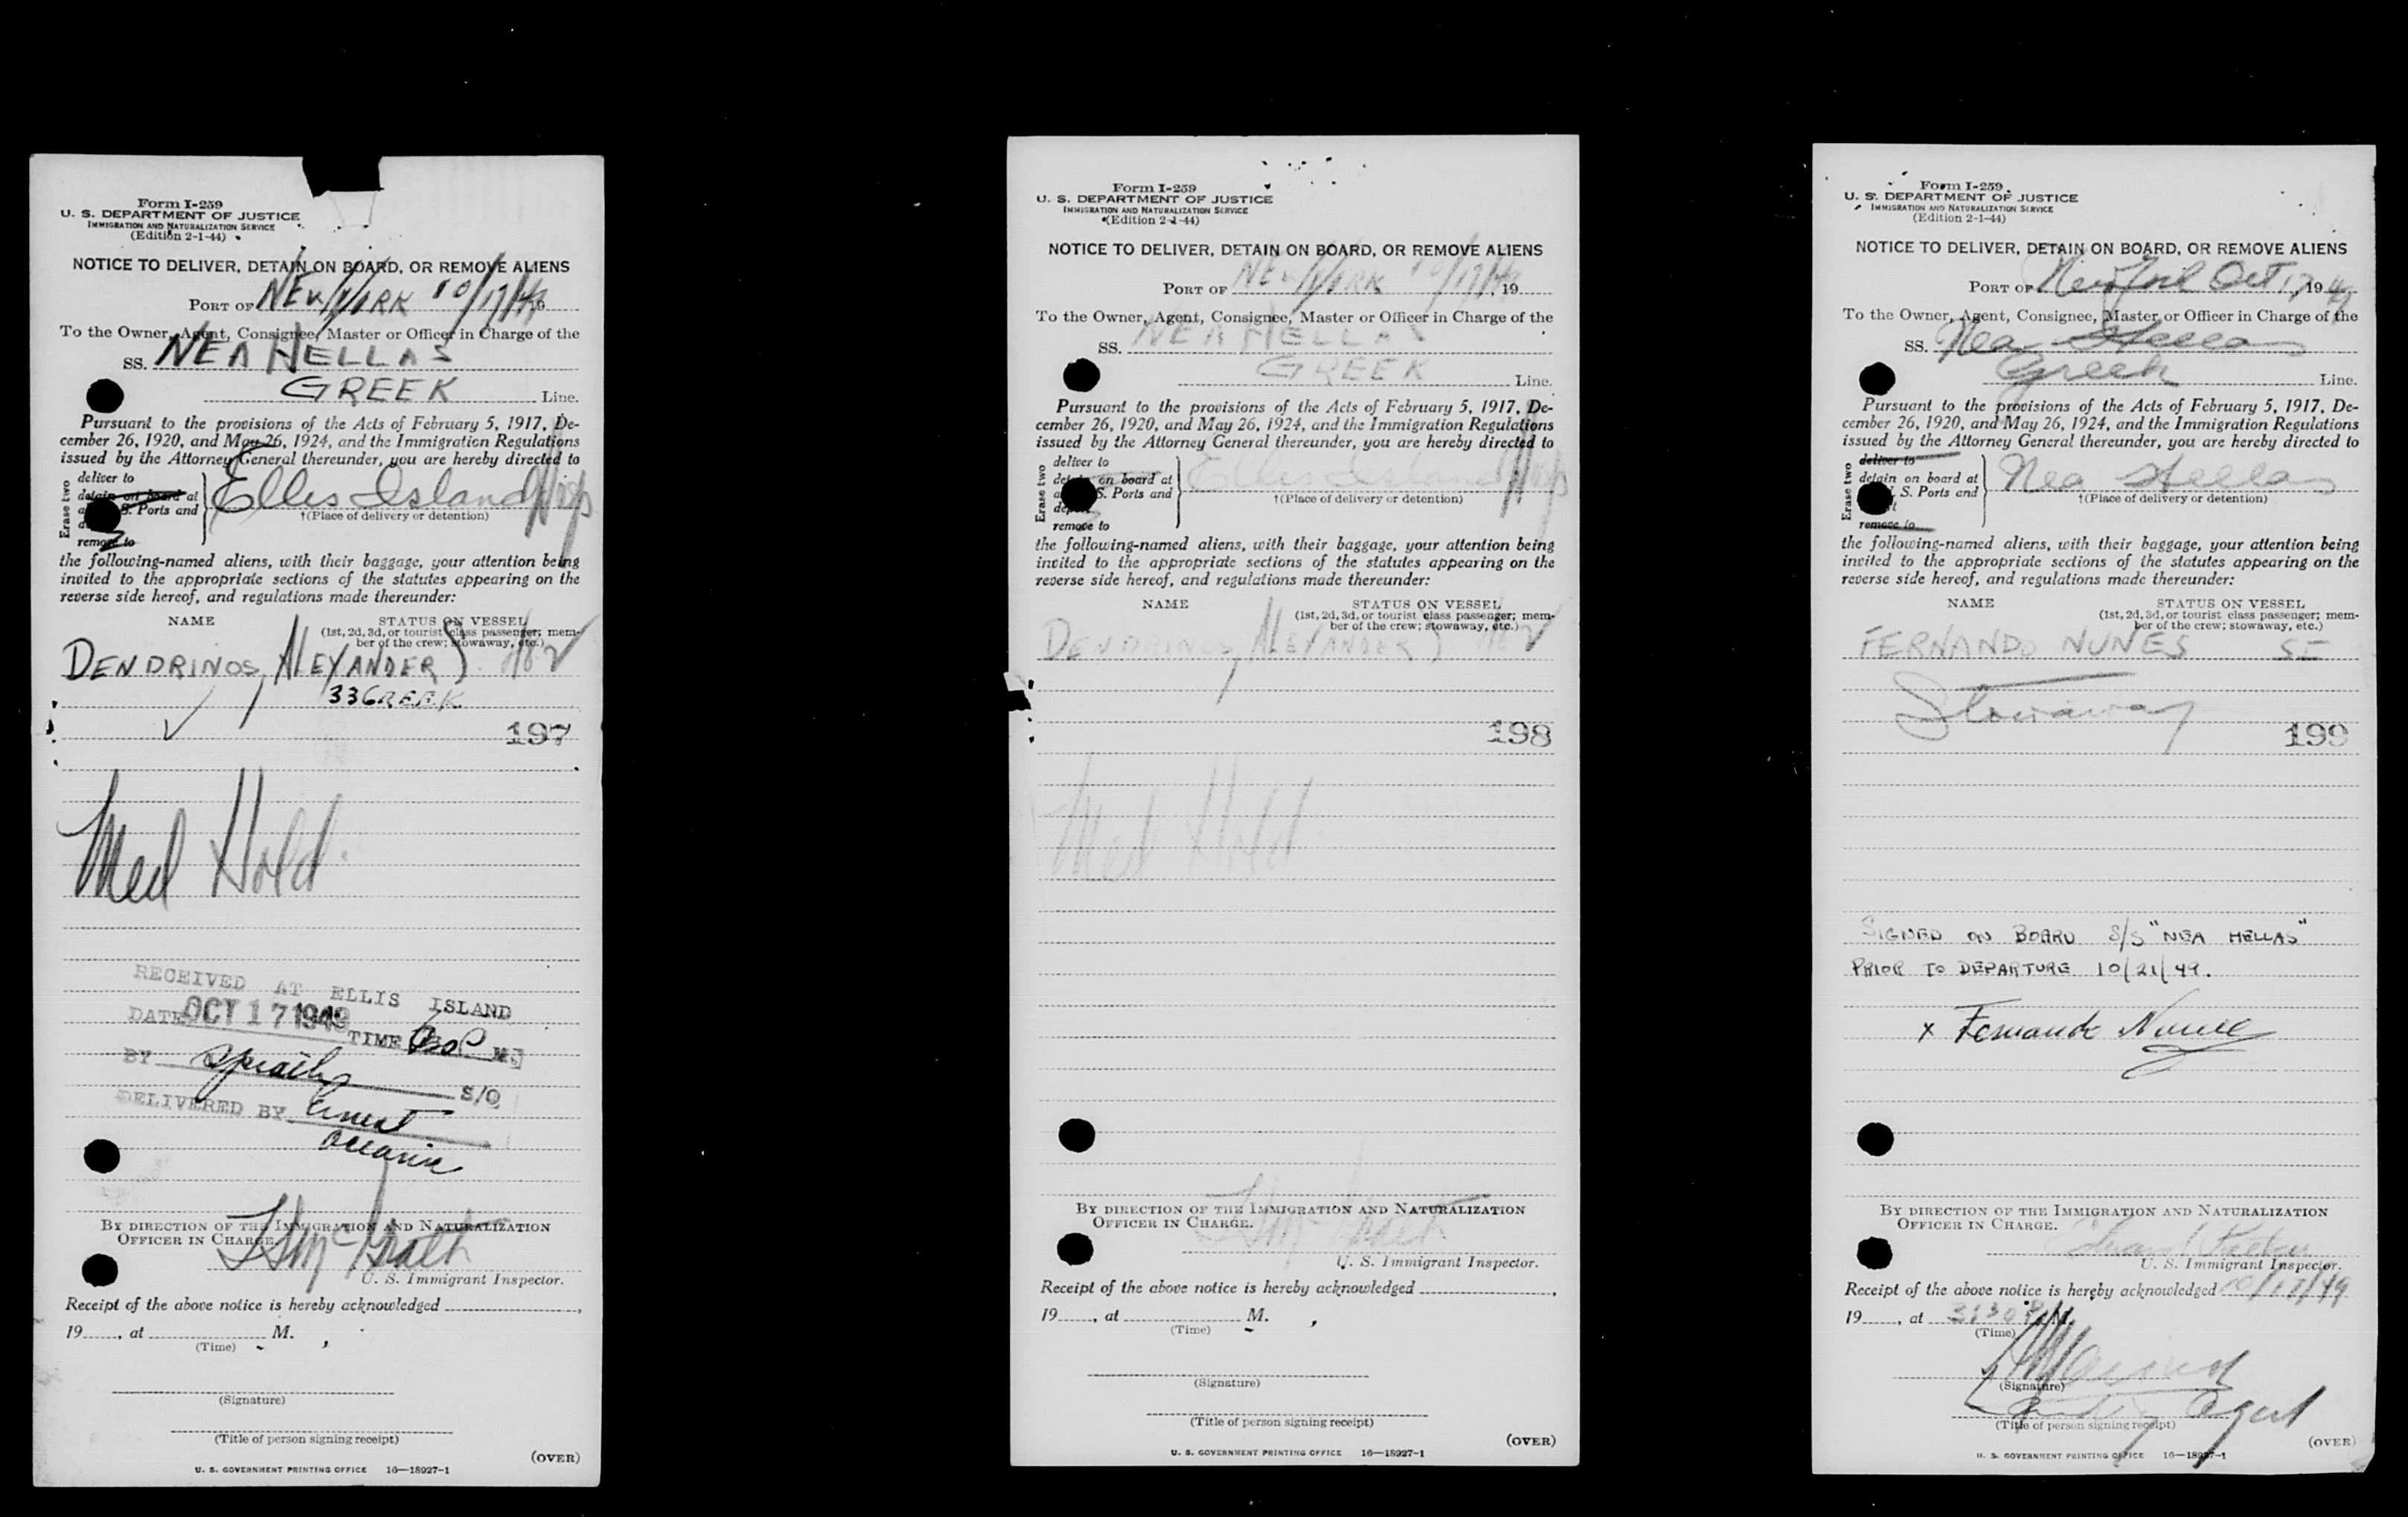 Form I-259
U. S. DEPARTMENT OF JUSTICE
IMMIGRATION AND NATURALIZATION SERVICE
(Edition 2-1-44)
NOTICE TO DELIVER, DETAIN ON BOARD, OR REMOVE ALIENS
PORT OF NEW YORK 10/17/49
To the Owner, Agent, Consignee, Master or Officer in Charge of the
SS. NEA HELLAS
GREEK Line.
Pursuant to the provisions of the Acts of February 5, 1917, De-
cember 26, 1920, and May 26, 1924, and the Immigration Regulations
issued by the Attorney General thereunder, you are hereby directed to
Erase two
deliver to
detain on board at
S. Ports and
remove to
Ellis Island Hosp
†(Place of delivery or detention)
the following-named aliens, with their baggage, your attention being
invited to the appropriate sections of the statutes appearing on the
reverse side hereof, and regulations made thereunder:
NAME STATUS ON VESSEL
(1st, 2d, 3d, or tourist class passenger; mem-
ber of the crew; stowaway, etc.)
DENDRINOS, ALEXANDER
33 GREEK
197
Med Hold
RECEIVED AT ELLIS ISLAND
DATE OCT 17 1949 TIME M.
BY S/O
DELIVERED BY Ernest
BY DIRECTION OF THE IMMIGRATION AND NATURALIZATION
OFFICER IN CHARGE.
McGrath
U. S. Immigrant Inspector.
Receipt of the above notice is hereby acknowledged
19 , at M.
(Time)
(Signature)
(Title of person signing receipt)
(OVER)
U. S. GOVERNMENT PRINTING OFFICE 16—18927-1
Form I-259
U. S. DEPARTMENT OF JUSTICE
IMMIGRATION AND NATURALIZATION SERVICE
(Edition 2-1-44)
NOTICE TO DELIVER, DETAIN ON BOARD, OR REMOVE ALIENS
PORT OF NEW YORK 10/17/49, 19
To the Owner, Agent, Consignee, Master or Officer in Charge of the
SS. NEA HELLAS
GREEK Line.
Pursuant to the provisions of the Acts of February 5, 1917, De-
cember 26, 1920, and May 26, 1924, and the Immigration Regulations
issued by the Attorney General thereunder, you are hereby directed to
Erase two
deliver to
on board at
S. Ports and
remove to
Ellis Island Hosp
†(Place of delivery or detention)
the following-named aliens, with their baggage, your attention being
invited to the appropriate sections of the statutes appearing on the
reverse side hereof, and regulations made thereunder:
NAME STATUS ON VESSEL
(1st, 2d, 3d, or tourist class passenger; mem-
ber of the crew; stowaway, etc.)
DENDRINOS, ALEXANDER
198
Med Hold
BY DIRECTION OF THE IMMIGRATION AND NATURALIZATION
OFFICER IN CHARGE.
McGrath
U. S. Immigrant Inspector.
Receipt of the above notice is hereby acknowledged
19 , at M.
(Time)
(Signature)
(Title of person signing receipt)
(OVER)
U. S. GOVERNMENT PRINTING OFFICE 16—18927-1
Form I-259
U. S. DEPARTMENT OF JUSTICE
IMMIGRATION AND NATURALIZATION SERVICE
(Edition 2-1-44)
NOTICE TO DELIVER, DETAIN ON BOARD, OR REMOVE ALIENS
PORT OF New York Oct 17, 1949
To the Owner, Agent, Consignee, Master or Officer in Charge of the
SS. Nea Hellas
Greek Line.
Pursuant to the provisions of the Acts of February 5, 1917, De-
cember 26, 1920, and May 26, 1924, and the Immigration Regulations
issued by the Attorney General thereunder, you are hereby directed to
Erase two
deliver to
detain on board at
S. Ports and
remove to
Nea Hellas
†(Place of delivery or detention)
the following-named aliens, with their baggage, your attention being
invited to the appropriate sections of the statutes appearing on the
reverse side hereof, and regulations made thereunder:
NAME STATUS ON VESSEL
(1st, 2d, 3d, or tourist class passenger; mem-
ber of the crew; stowaway, etc.)
FERNANDO NUNES
Stowaway
199
SIGNED ON BOARD S/S "NEA HELLAS"
PRIOR TO DEPARTURE 10/21/49.
x Fernando Nunes
BY DIRECTION OF THE IMMIGRATION AND NATURALIZATION
OFFICER IN CHARGE.
U. S. Immigrant Inspector.
Receipt of the above notice is hereby acknowledged 10/17/49
19 , at 3:30 P M.
(Time)
(Signature)
Agent
(Title of person signing receipt)
(OVER)
U. S. GOVERNMENT PRINTING OFFICE 16—18927-1